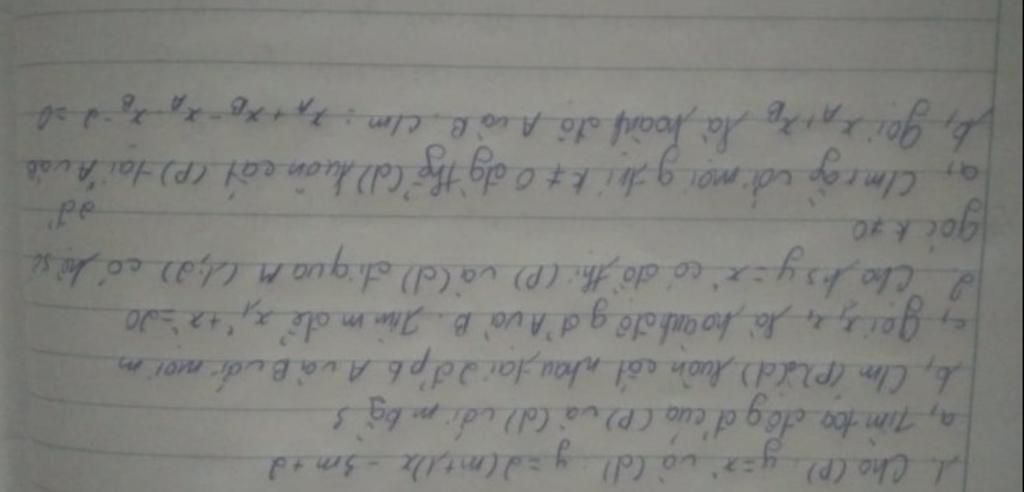 1. Cho (P): y = x² và (d): y = 2(m+1)x - 3m + 2
a, Tìm toạ độ gđ của (P) và (d) với m bg 3
b, Clm (P) và (d) luôn cắt nhau tại 2đ' pb A và B với mọi m
c, gọi x₁, x₂ là hoành độ gđ A và B. Tìm m để x₁² + x₂² = 20
2. Cho hs y = x² có đồ thị (P) và (d) đi qua M (1;2) có hệ số
góc k ≠ 0 2đ'
a, Clm rằng với mọi g trị k ≠ 0 đg thg (d) luôn cắt (P) tại A và B
b, gọi x_A, x_B là hoành độ A và B. Clm: x_A + x_B - x_A . x_B - 2 = 0